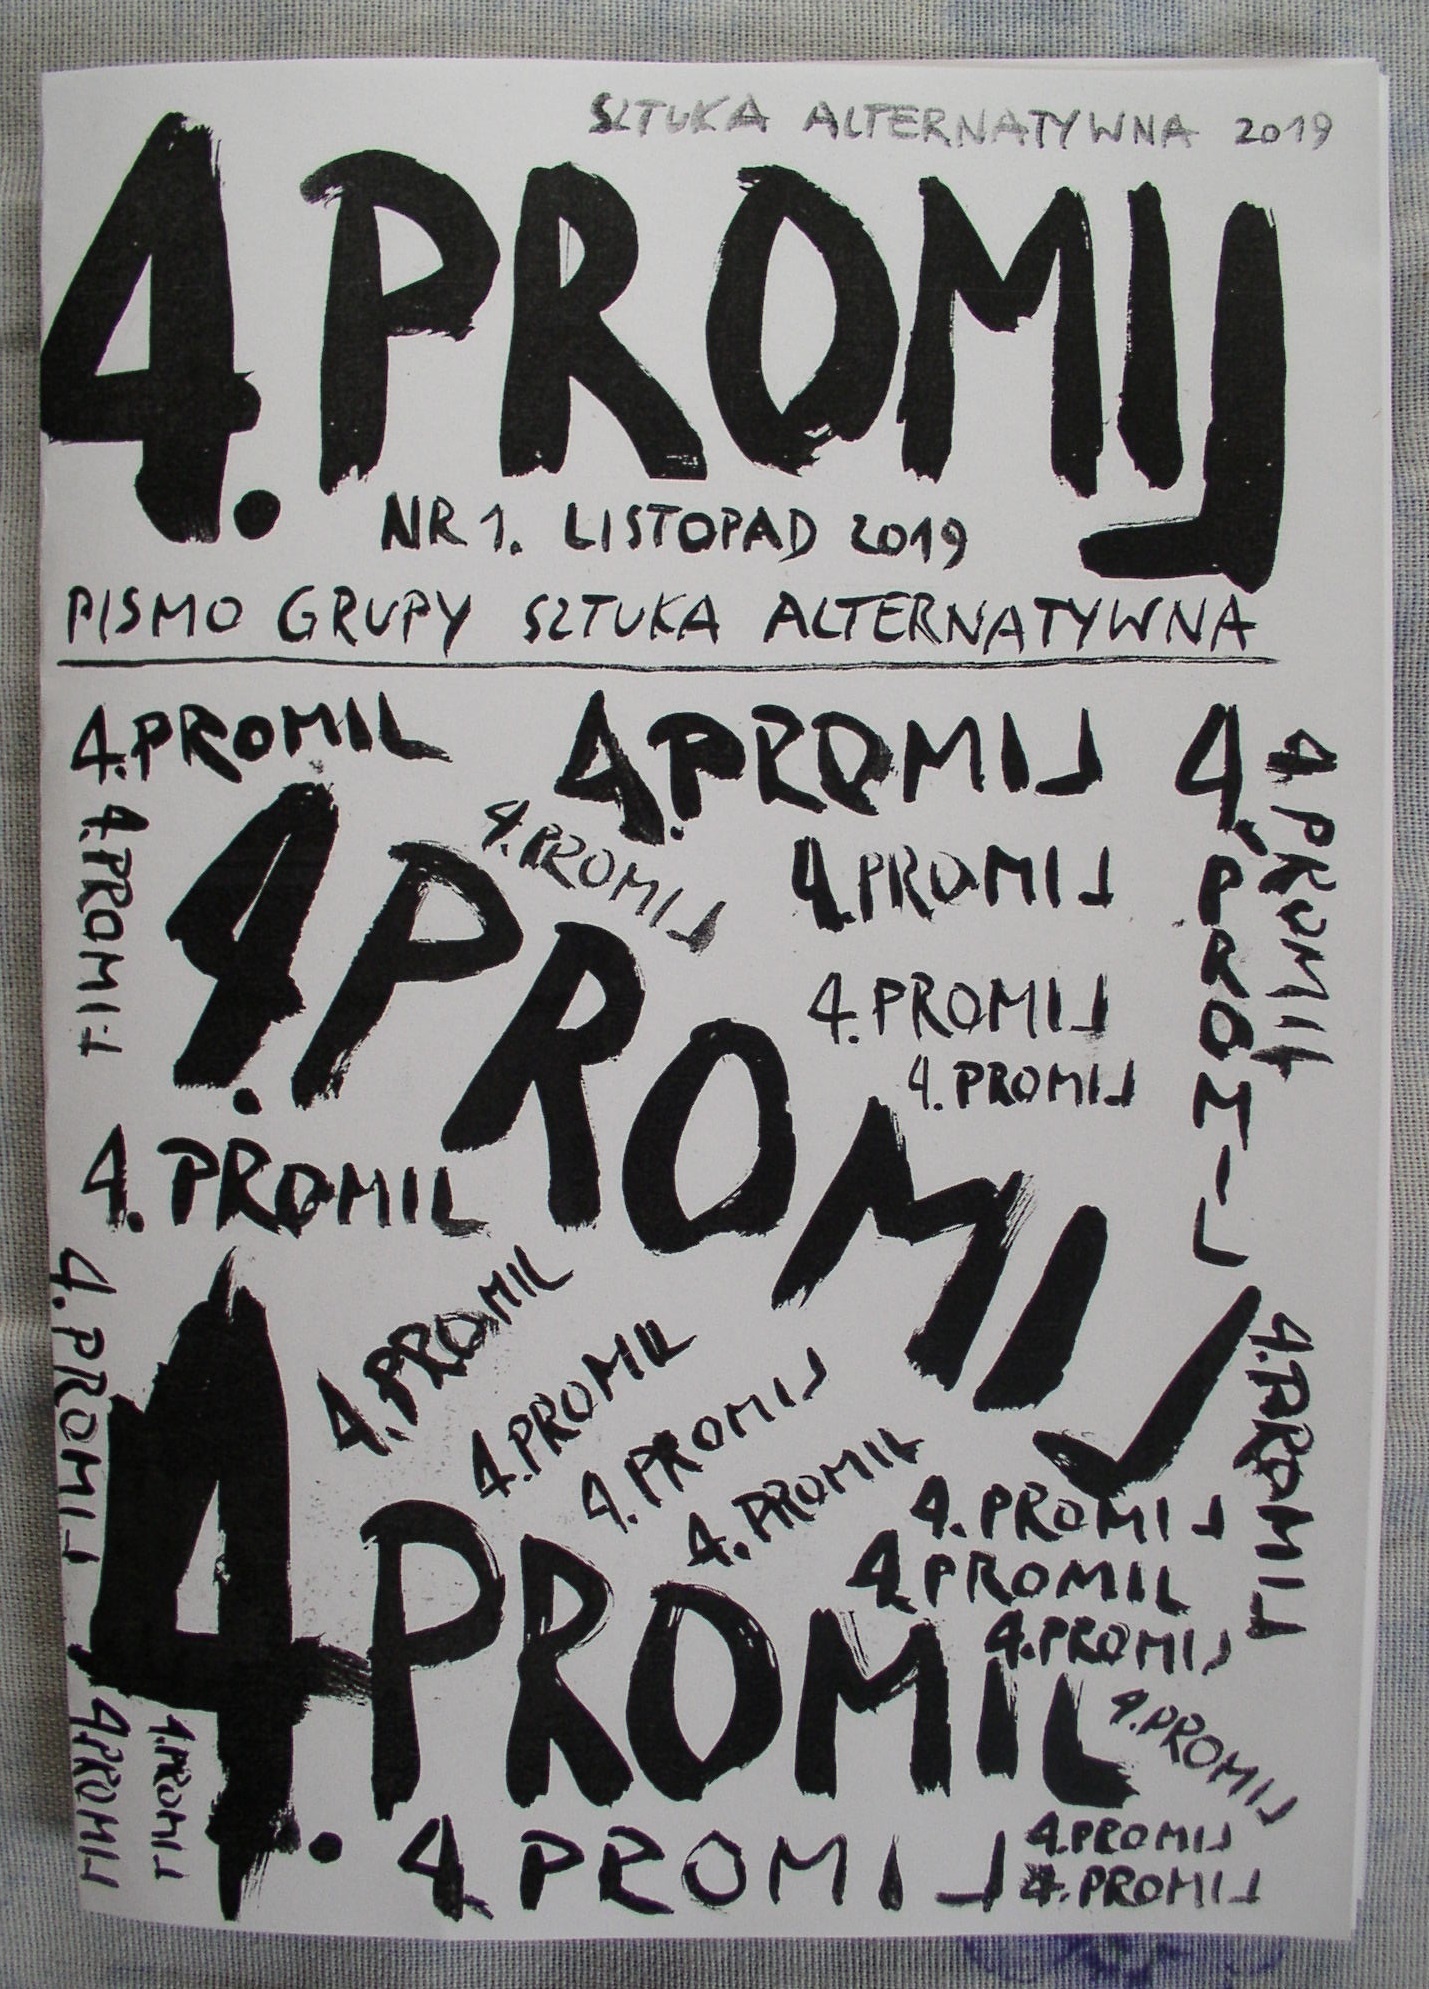 SZTUKA ALTERNATYWNA 2019
4.PROMIL
NR 1. LISTOPAD 2019
PISMO GRUPY SZTUKA ALTERNATYWNA
4.PROMIL
4.PROMIL
4.PROMIL
4.PROMIL
4.PROMIL
4.PROMIL
4.PROMIL
4.PROMIL
4.PROMIL
4.PROMIL
4.PROMIL
4.PROMIL
4.PROMIL
4.PROMIL
4.PROMIL
4.PROMIL
4.PROMIL
4.PROMIL
4.PROMIL
4.PROMIL
4.PROMIL
4.PROMIL
4.PROMIL
4.PROMIL
4.PROMIL
4.PROMIL
4.PROMIL